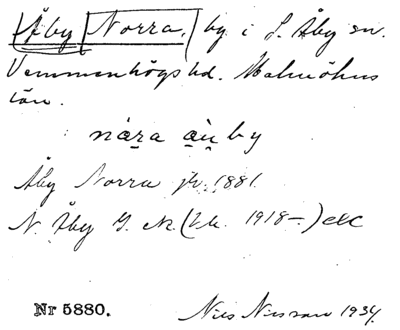 Åby Norra, by i S. Åby sn.
Vemmenhögs hd. Malmöhus
län.
nàra àu̯by
Åby Norra jr. 1881.
N. Åby G. K. (bl. 1918-) etc
Nr 5880. Nils Nilsson 1934.